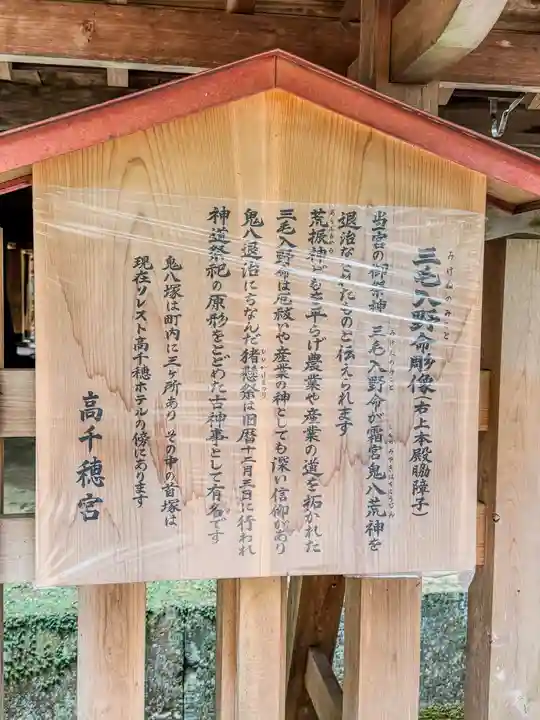 三毛入野命彫像（右上本殿脇障子）
みけんのみこと
当宮の御祭神 三毛入野命が霜宮鬼八荒神を
退治なされたものと伝えられます
荒振神どもを平らげ農業や産業の道を拓かれた
三毛入野命は厄祓いや産業の神としても深い信仰があり
鬼八退治にちなんだ猪懸祭は旧暦十二月三日に行われ
神道祭祀の原形をとどめた古神事として有名です
鬼八塚は町内に三ヶ所あり その中の首塚は
現在ソレスト高千穂ホテルの傍にあります
高千穂宮